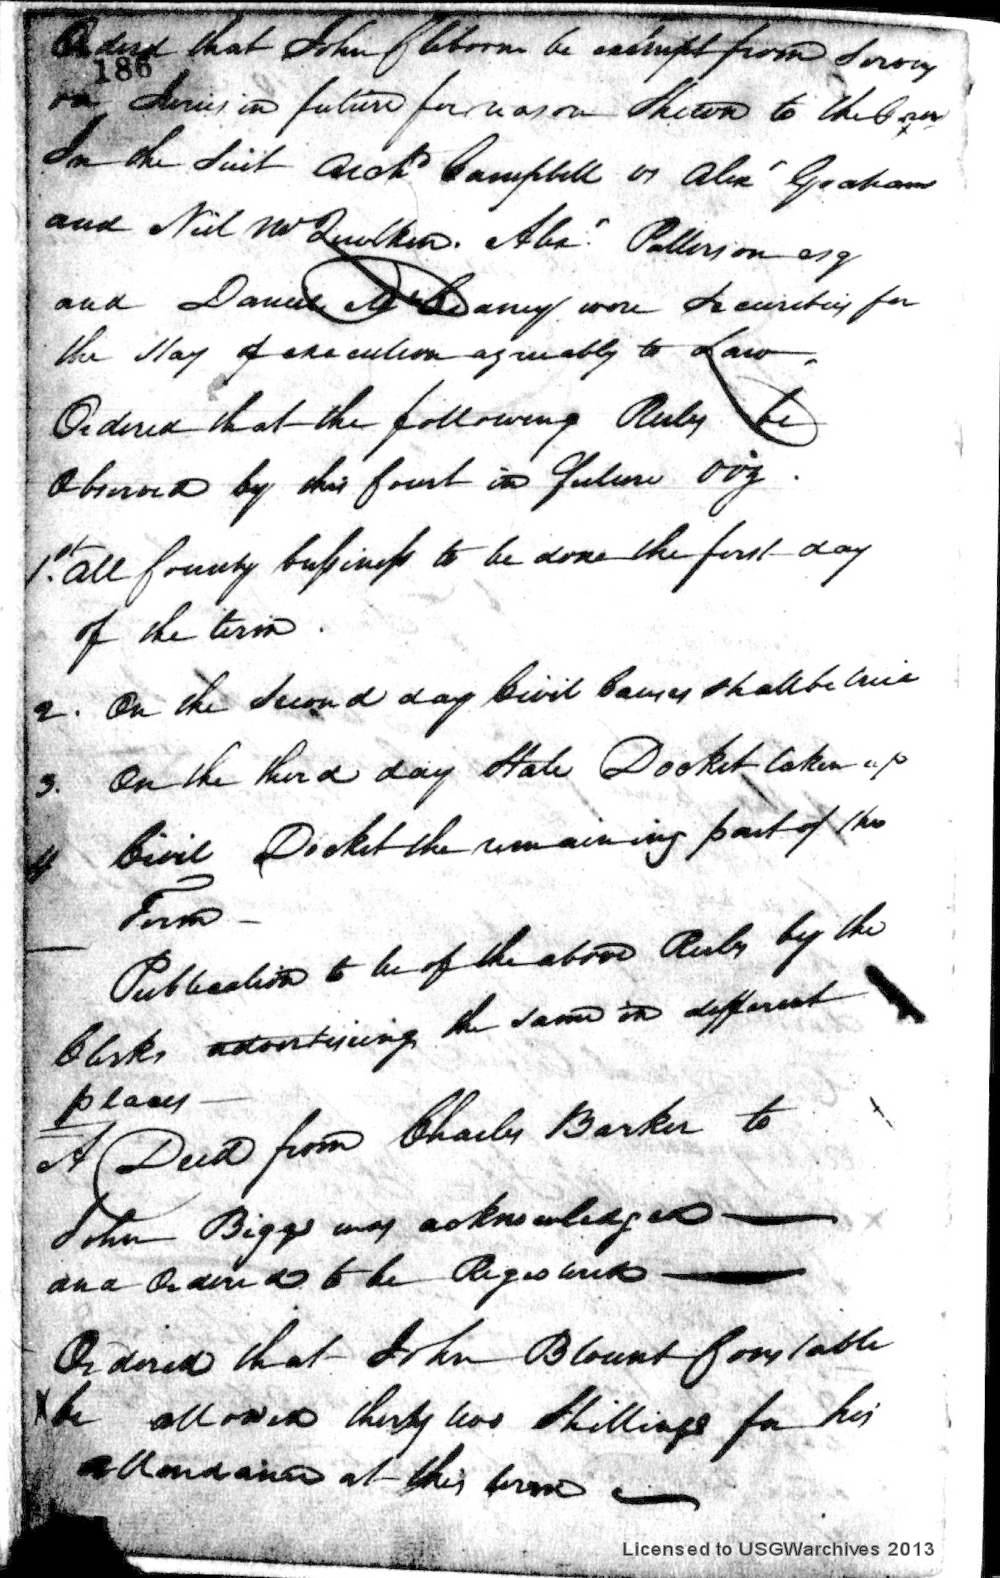 Ordered that John Cleborn be exempt from Serving
186
on Juries in future for reason Shewn to the Court
In the Suit Archd Campbell vs Alexr Graham
and Neil McQuilken. Alexr. Patterson esq
and Daniel were Securities for
the Stay of execution agreeably to Law.
Ordered that the following Rules be
Observed by this Court in future viz.
1.st All County bussiness to be done the first day
of the term.
2. On the Second day Civil Causes shall be tried
3. On the third day State Docket taken up
4 Civil Docket the remaining part of the
Term —
Publication to be of the above Rules by the
Clerks advertising the same in different
places —
A Deed from Charles Barker to
John Biggs was acknowledged —
and Ordered to be Registered —
Ordered that John Blount Constable
X be allowed thirty two Shillings for his
attendance at this term —
Licensed to USGWarchives 2013